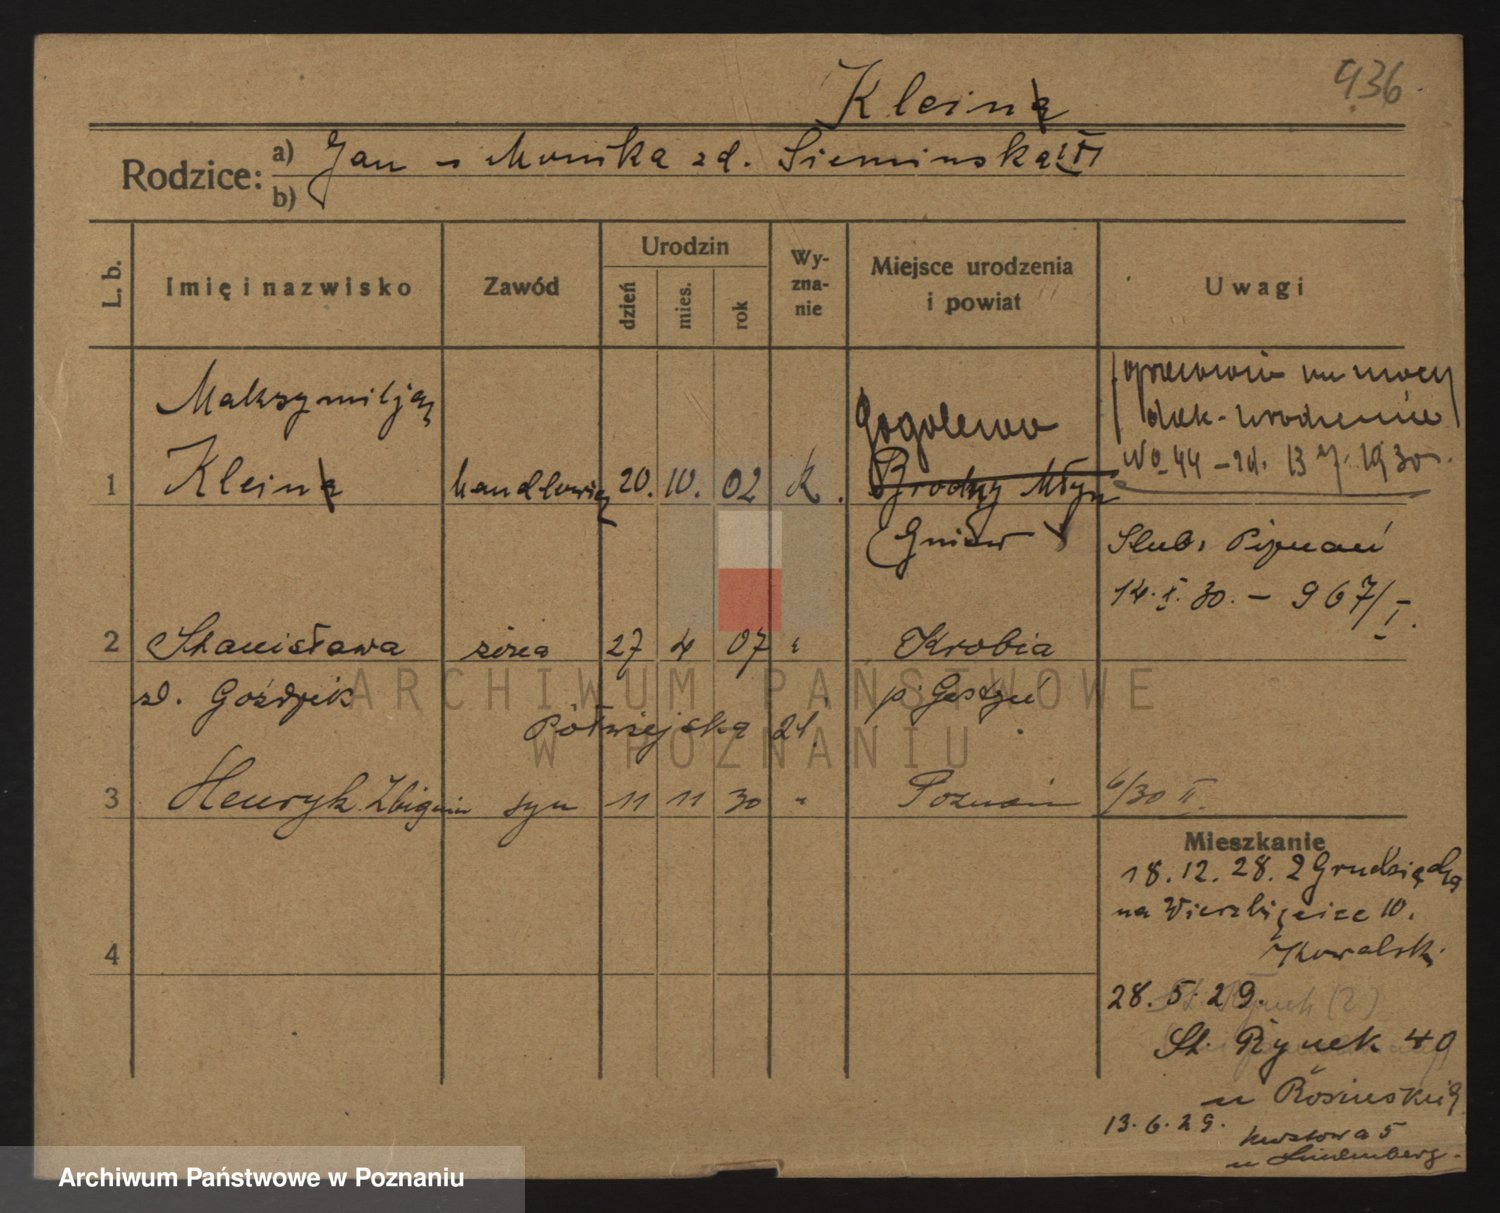 936
Klein
Rodzice: a) Jan – Monika zd. Siemińska
b)
L. b.
Imię i nazwisko
Zawód
Urodzin
dzień
mies.
rok
Wy-
zna-
nie
Miejsce urodzenia
i powiat
Uwagi
Maksymiljan
1 Klein handlowiec 20. 10. 02 k.
Gogolewo
Brodny Młyn
Gniew
na mocy
urodzenia
No 44 – zd. 13 7. 1930.
Ślub: Poznań
14. X. 30. – 967/I.
2 Stanisława żona 27 4 07 " Krobia
zd. Goździk p. Gostyń
Półwiejska 21.
3 Henryk Zbigniew syn 11 11 30 " Poznań 6/30 II.
4
Mieszkanie
18. 12. 28. z Grudziądza
na Wierzbięcice 10.
Kowalski
28. 5. 29.
St. Rynek 40
u
13. 6. 29.
5
u
ARCHIWUM PAŃSTWOWE
W POZNANIU
Archiwum Państwowe w Poznaniu